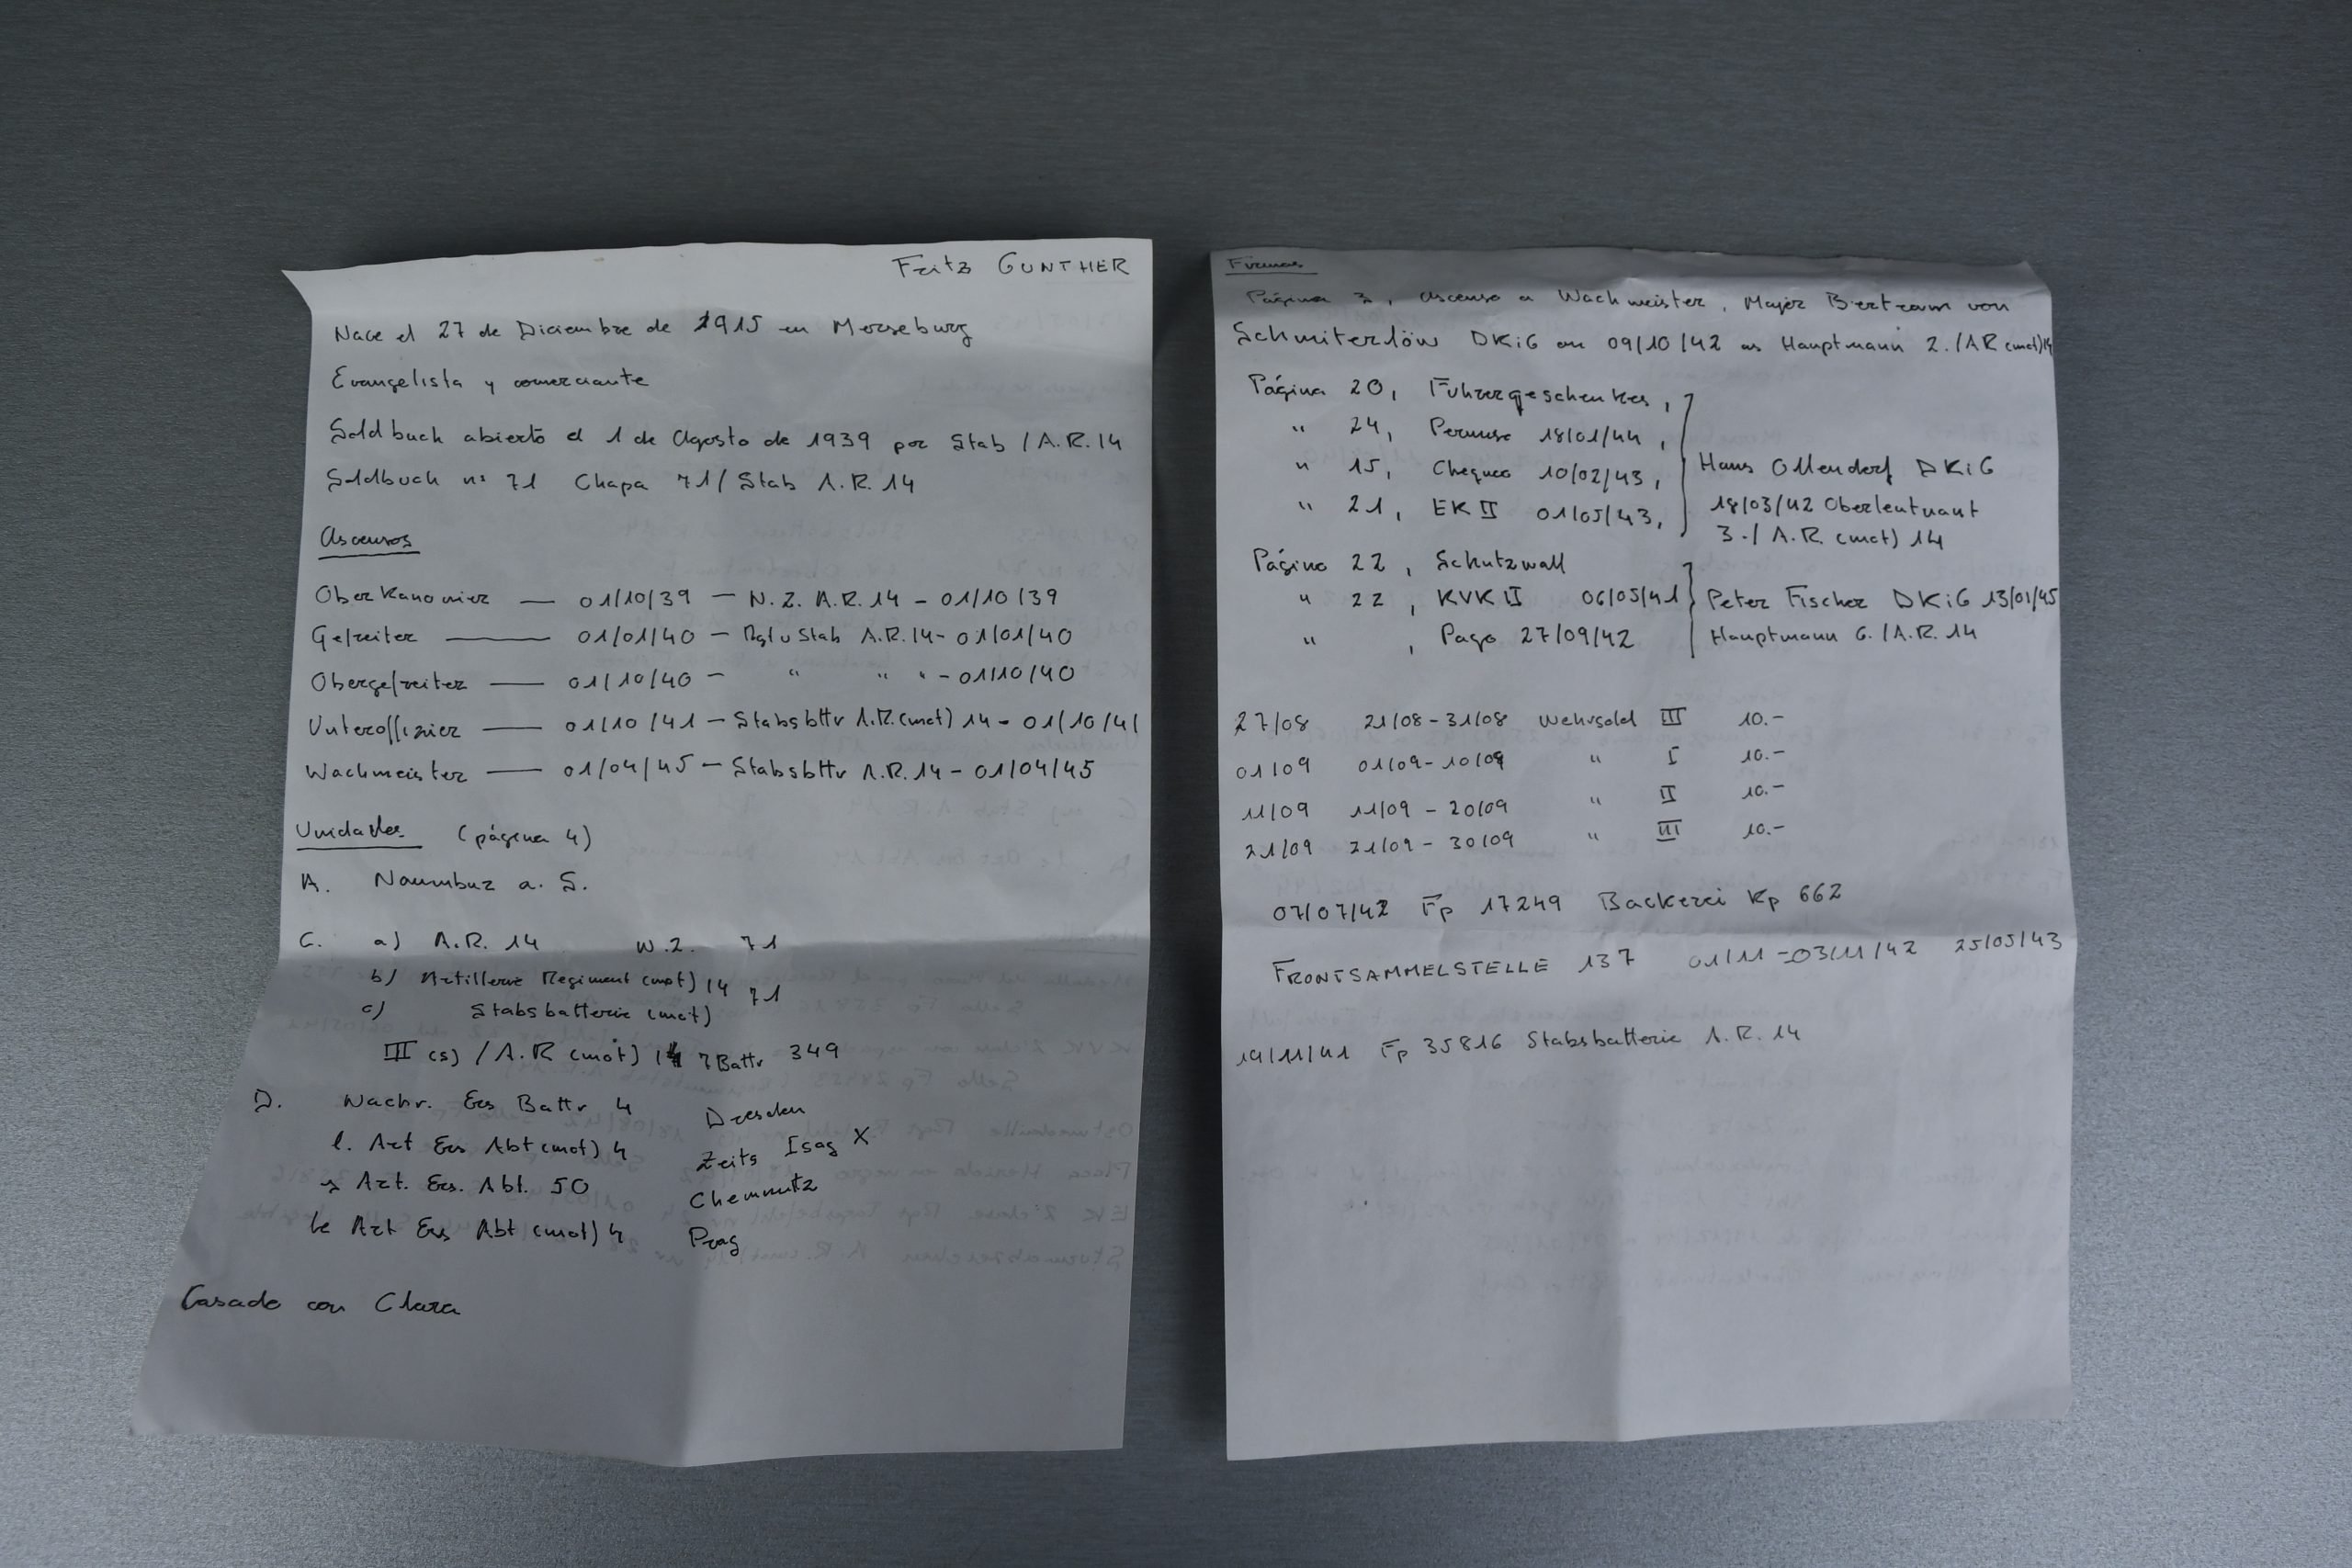 Fritz GUNTHER
Nace el 27 de Diciembre de 1915 en Merseburg
Evangelista y comerciante
Soldbuch abierto el 1 de Agosto de 1939 por Stab / A.R. 14
Soldbuch nº 71 Chapa 71/ Stab A.R. 14
Ascensos
Oberkanonier — 01/10/39 — N.Z. A.R. 14 - 01/10/39
Gefreiter — 01/01/40 — Rgtu Stab A.R. 14 - 01/01/40
Obergefreiter — 01/10/40 — " " " - 01/10/40
Unteroffizier — 01/10/41 — Stabsbttr A.R. (mot) 14 - 01/10/41
Wachmeister — 01/04/45 — Stabsbttr A.R. 14 - 01/04/45
Unidades (página 4)
A. Naumbur a. S.
C. a) A.R. 14 W.Z. 71
b) Artillerie Regiment (mot) 14 71
c) Stabsbatterie (mot)
III (s) / A.R (mot) 14 7 Battr 349
D. Nachr. Ers Battr 4 Dresden
l. Art Ers Abt (mot) 4 Zeits Isag X
s Art. Ers. Abt. 50 Chemnitz
le Art Ers Abt (mot) 4 Prag
Casado con Clara
Firmas
Página 3, ascenso a Wachmeister, Major Bertram von
Schmiterlöw DKiG en 09/10/42 as Hauptmann 2./AR (mot) 14
Página 20, Führergeschenkes,
" 24, Permiso 18/01/44,
" 15, Chequeo 10/02/43, Hans Ollendorf DKiG
" 21, EK II 01/05/43, 18/03/42 Oberleutnant
3./ A.R. (mot) 14
Página 22, Schutzwall
" 22, KVK II 06/05/41 Peter Fischer DKiG 13/01/45
" , Pago 27/09/42 Hauptmann 6./A.R. 14
27/08 21/08 - 31/08 Wehrsold III 10.-
01/09 01/09 - 10/09 " I 10.-
11/09 11/09 - 20/09 " II 10.-
21/09 21/09 - 30/09 " III 10.-
07/07/42 Fp 17249 Backerei Kp 662
FRONTSAMMELSTELLE 137 01/11 - 03/11/42 25/05/43
19/11/41 Fp 35816 Stabsbatterie A.R. 14